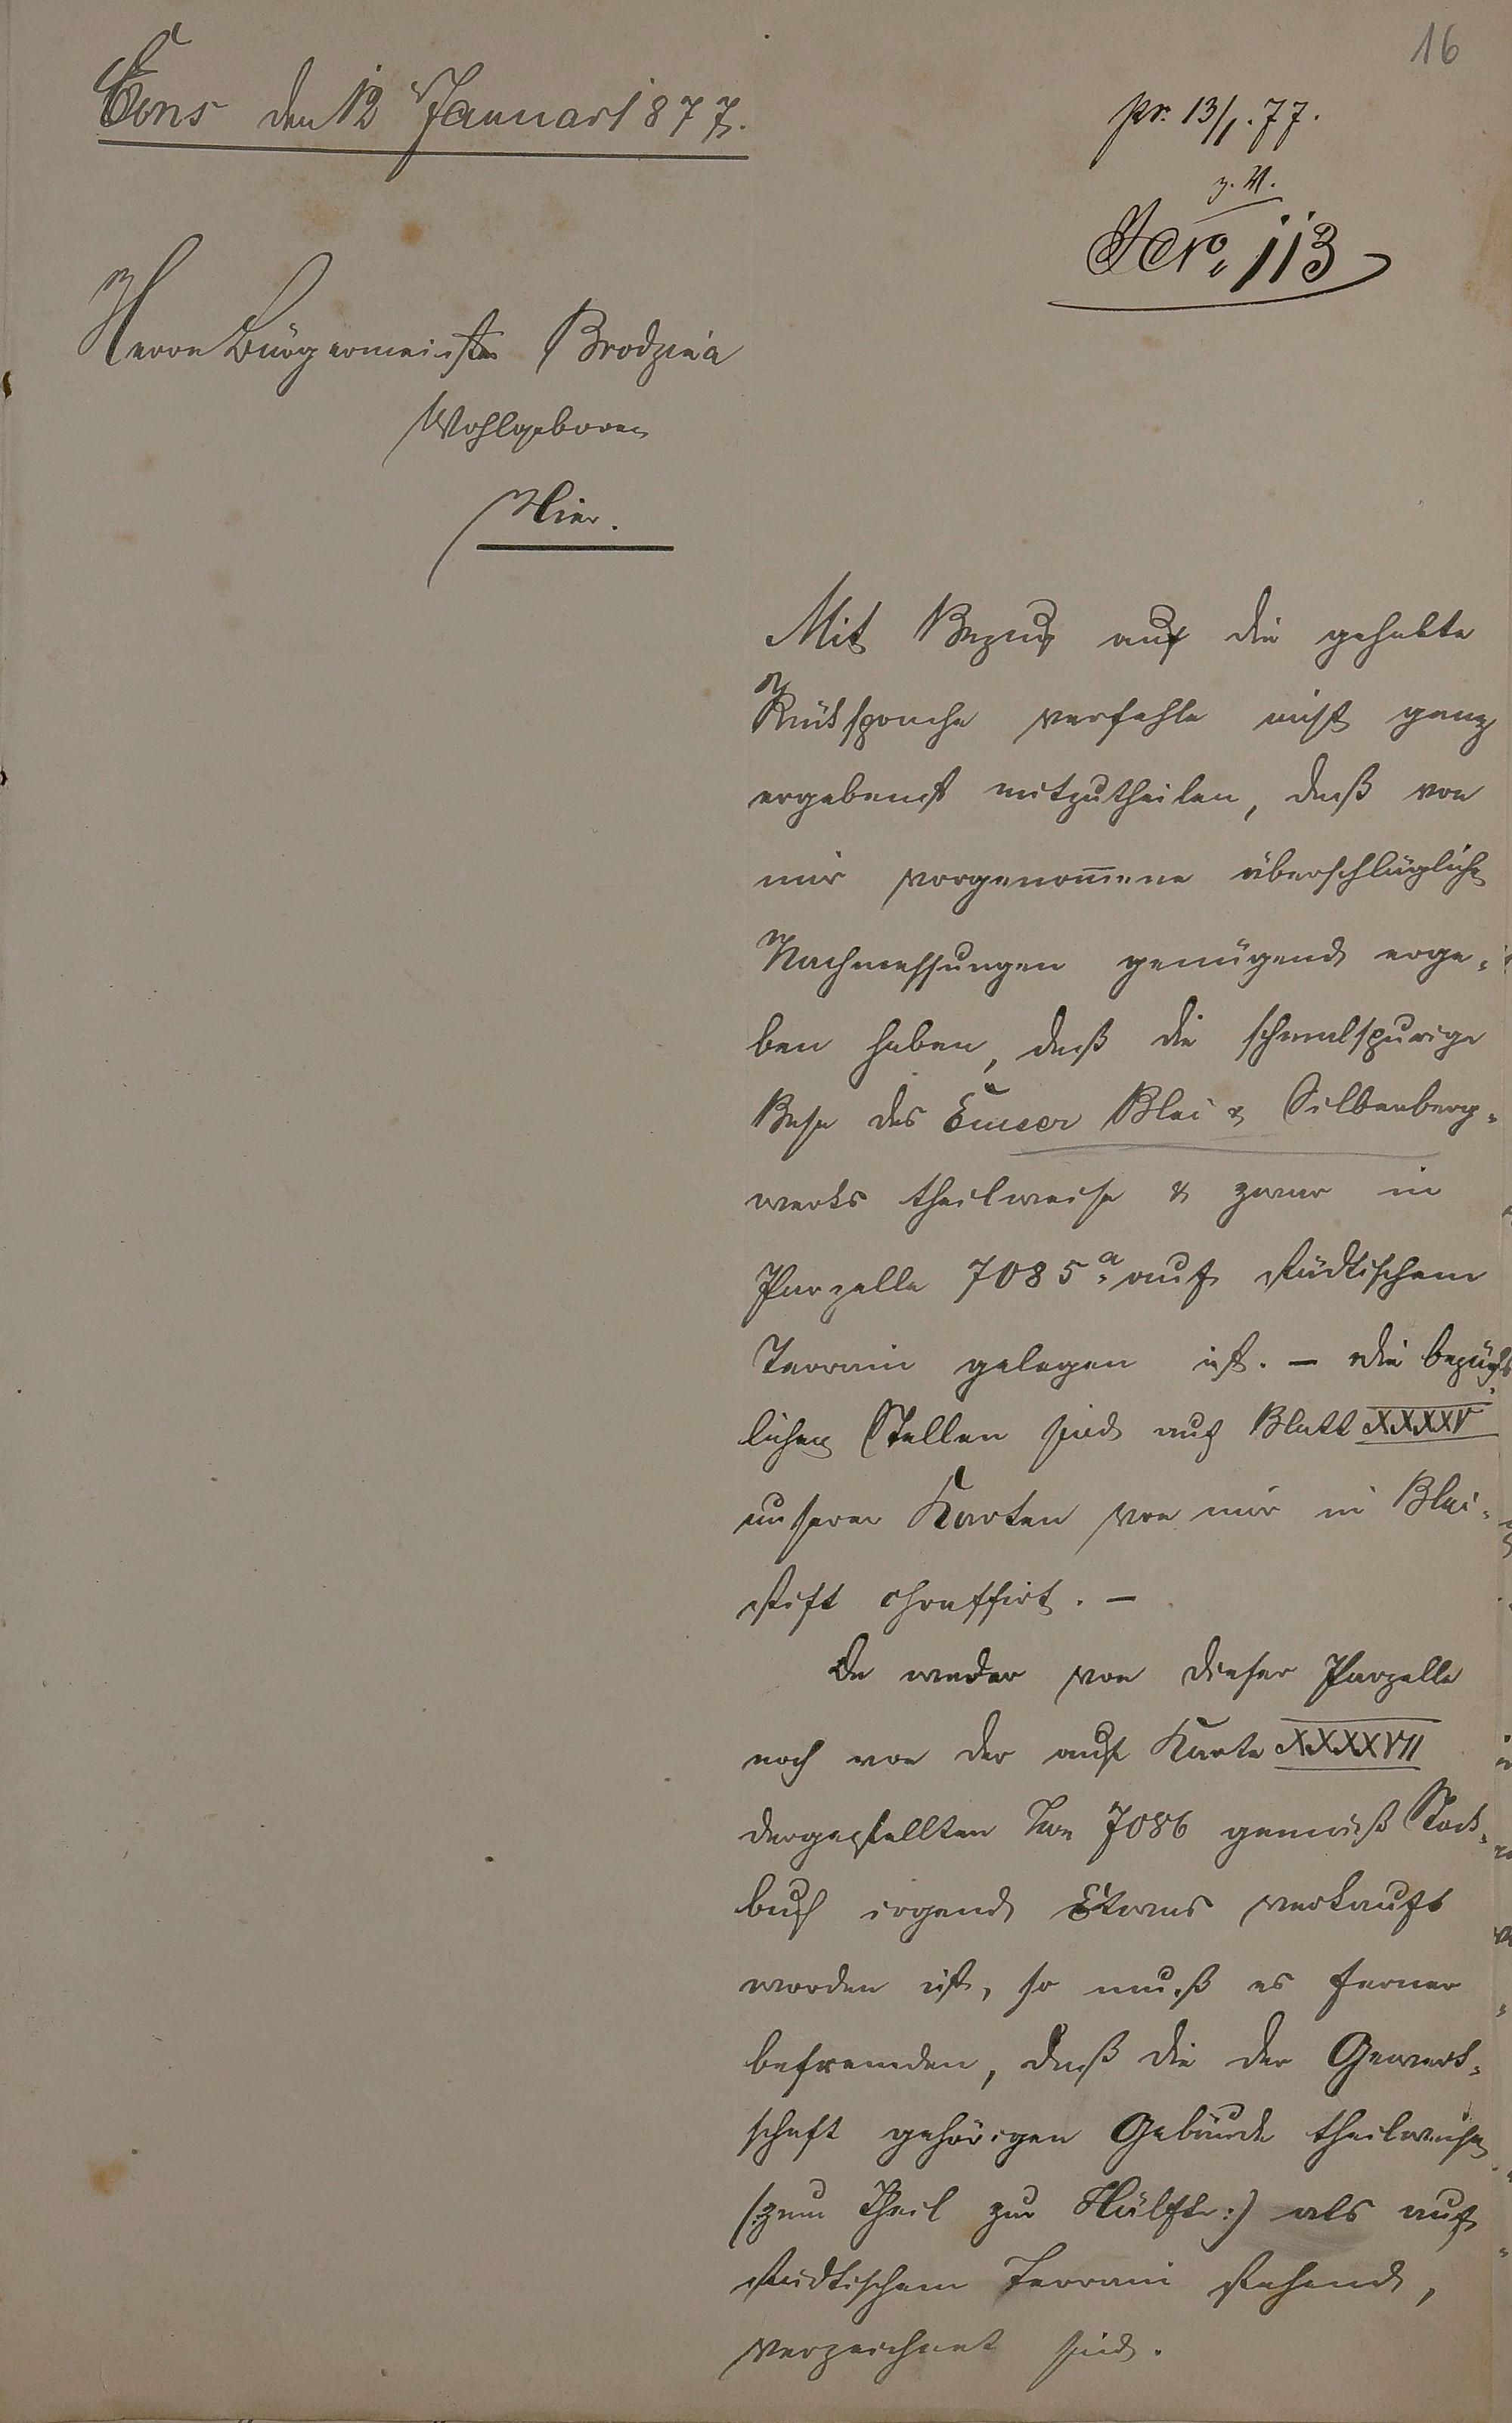 16
Ems den 12 Januar 1877.
pr. 13/1. 77.
z. A.
Nro. 113
Herrn Bürgermeister Brodzina
Wohlgeboren
Hier.
Mit Bezug auf die gehabte
Rüksprache verfehle nicht ganz
ergebenst mitzutheilen, daß von
mir vorgenom̅ene überschlägliche
Nachmessungen genügend erge-
ben haben, daß die schmalspurige
Bahn des Emser Blei & Silberberg-
werks theilweise & zwar in
Parzelle 7085a auf städtischem
Terrain gelegen ist. – Die bezüg-
lichen Stellen sind auf Blatt XXXXV
unserer Karten von mir in Blei-
stift schraffirt. –
Da weder von dieser Parzelle
noch von der auf Karte XXXXVII
dargestellten 7086 gemäß Stock-
buch irgend Etwas verkauft
worden ist, so muß es ferner
befremden, daß die der Gewerk-
schaft gehörigen Gebäude theilweise
(:zum Theil zur Hälfte:) als auf
städtischem Terrain stehend,
verzeichnet sind.